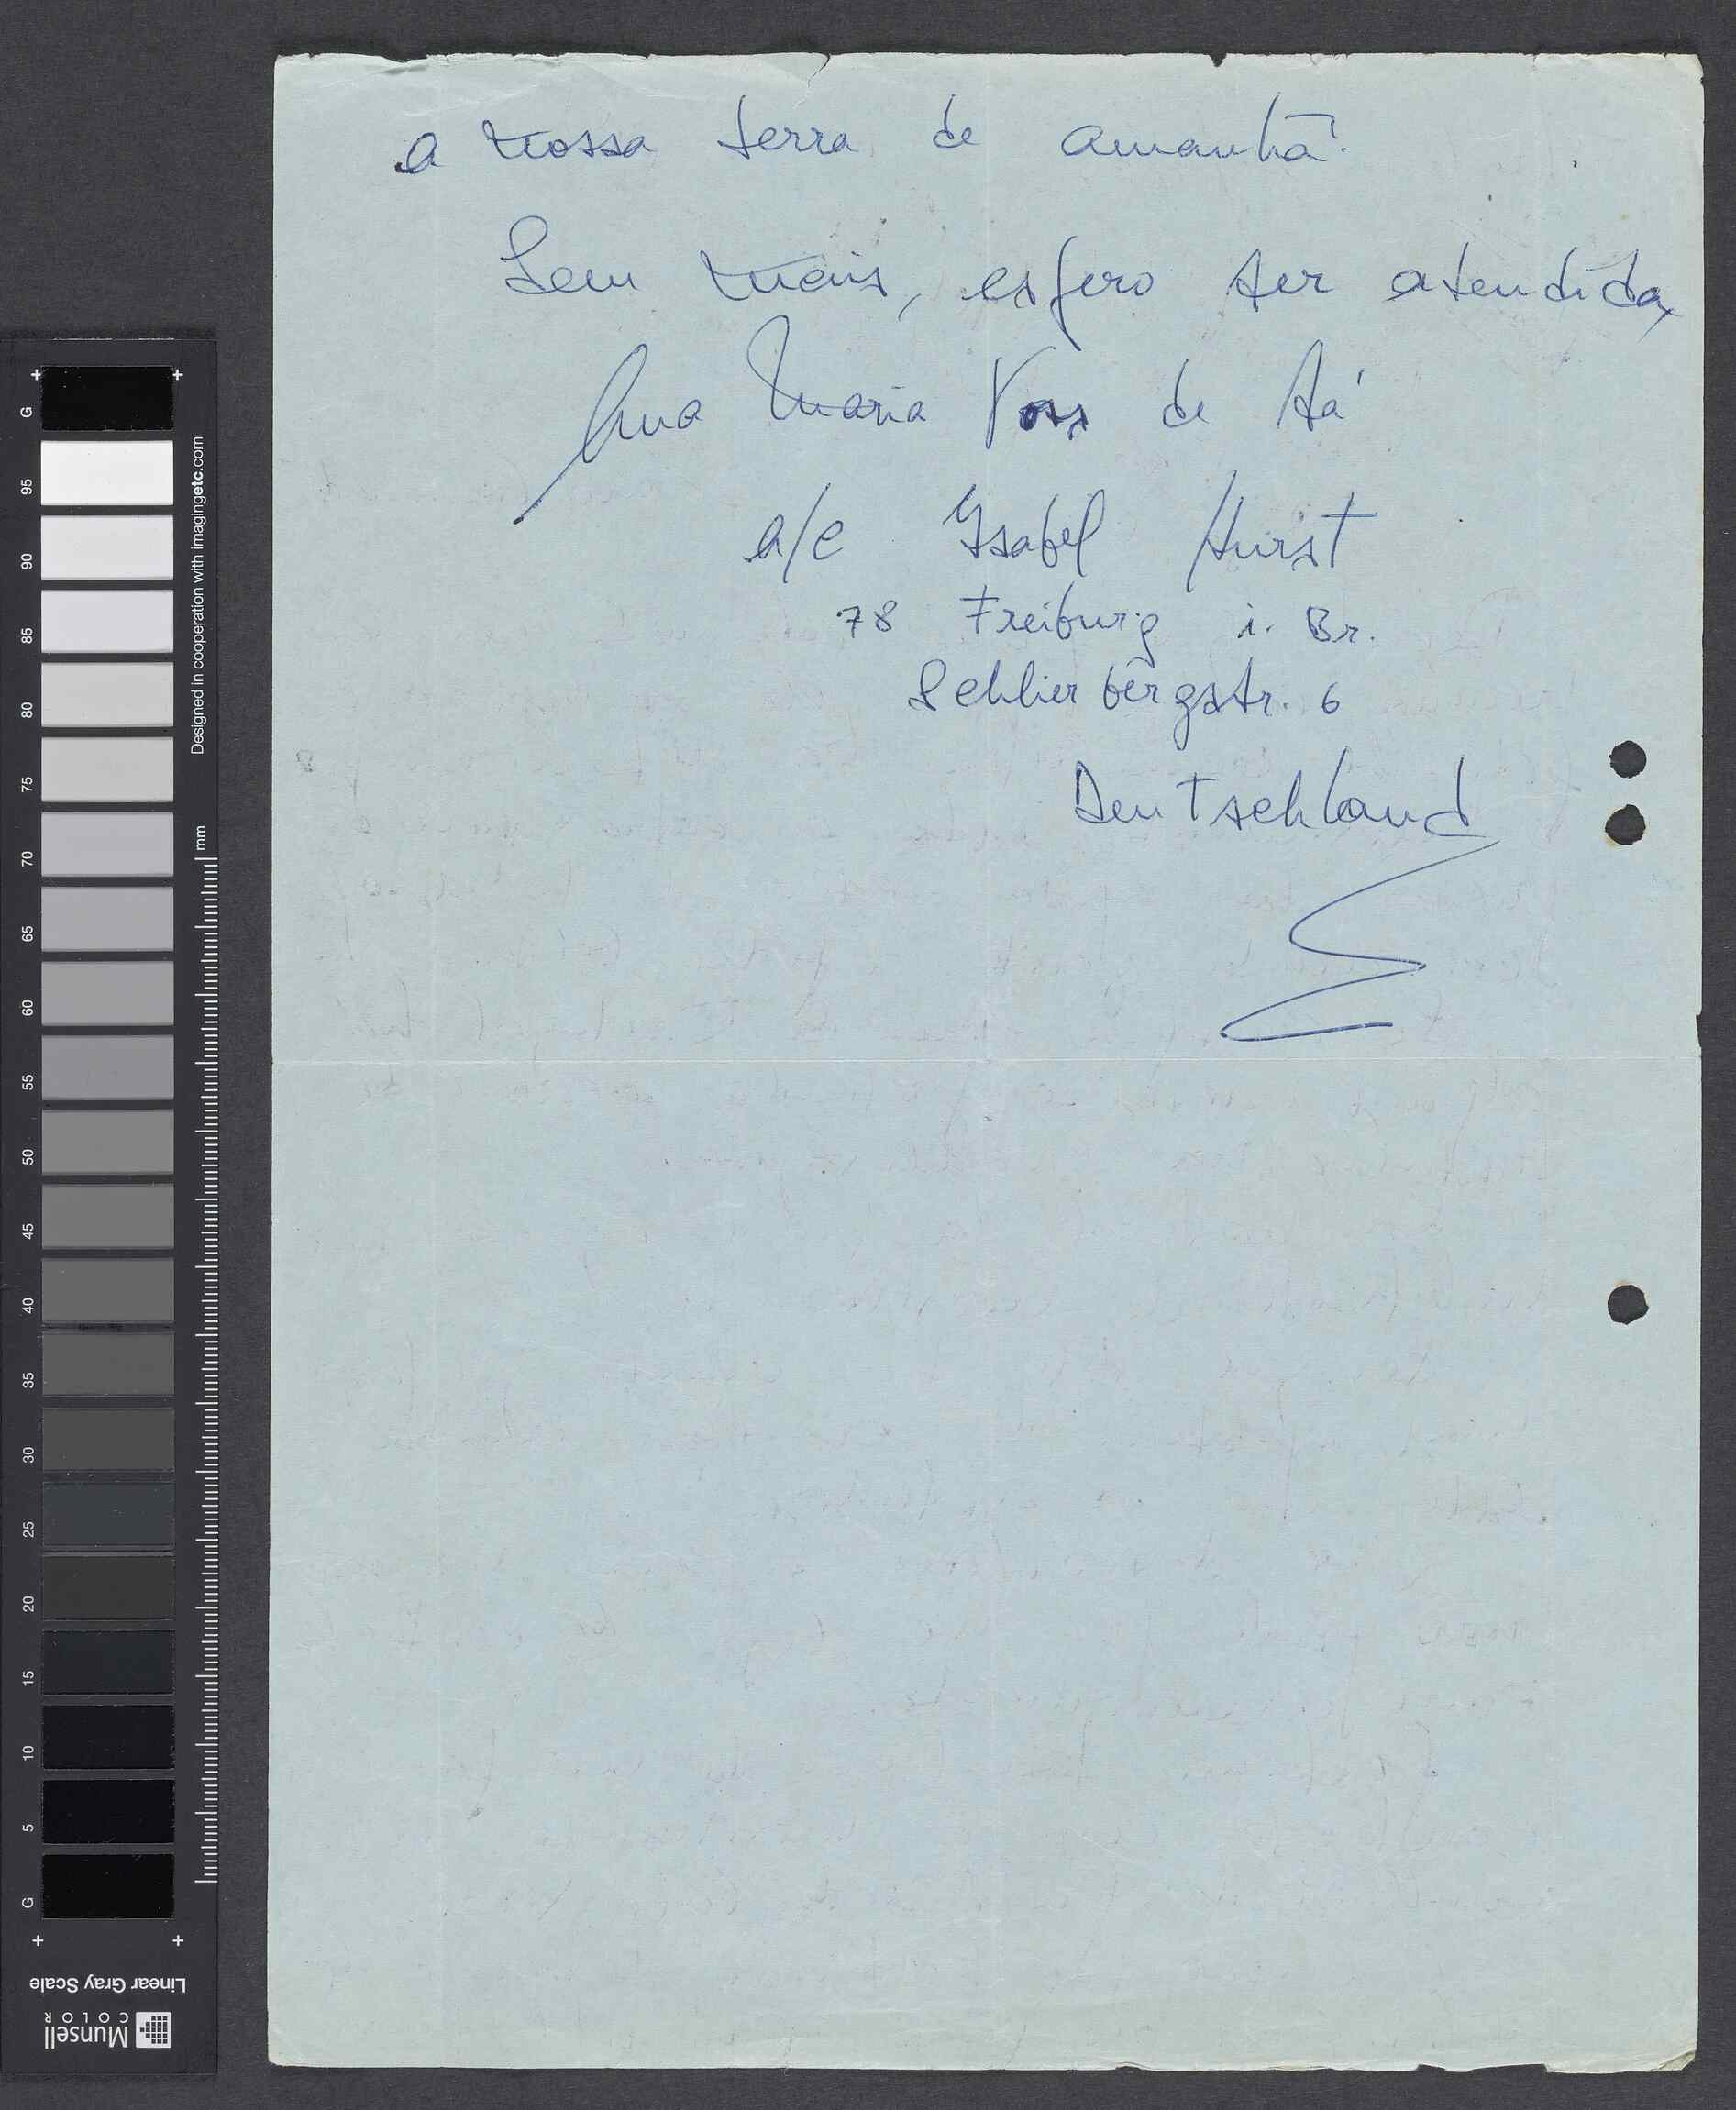 a nossa terra de amanhã.
Sem mais, espero ser atendida,
Ana Maria Voss de Sá
a/c Ysabel Hurst
78 Freiburg i. Br.
Schlierbergstr. 6
Deutschland
G
95
90
85
80
75
70
65
60
55
50
45
40
35
30
25
20
15
10
5
G
Designed in cooperation with imagingetc.com
mm
Linear Gray Scale
Munsell
COLOR